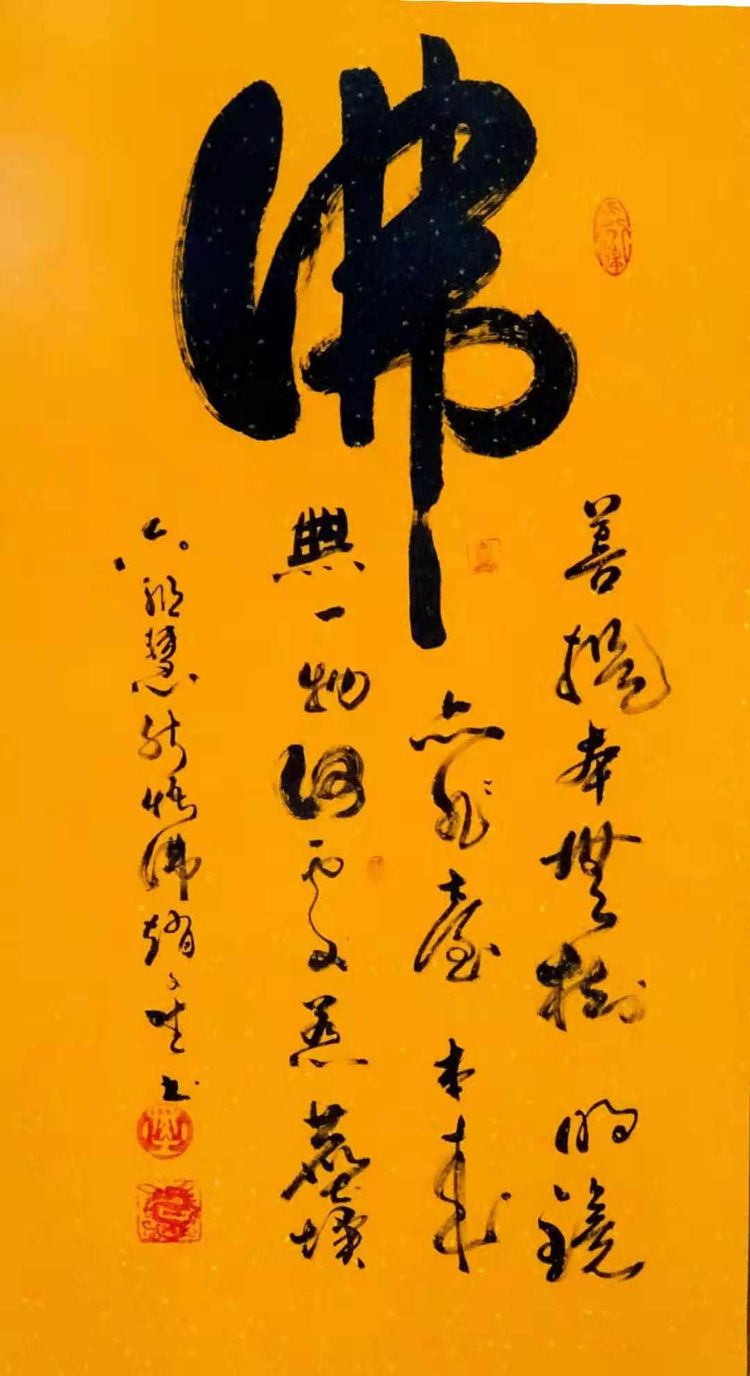 佛
菩提本無樹明鏡
亦非臺本來
無一物何處惹塵埃
六祖慧能悟佛趙书